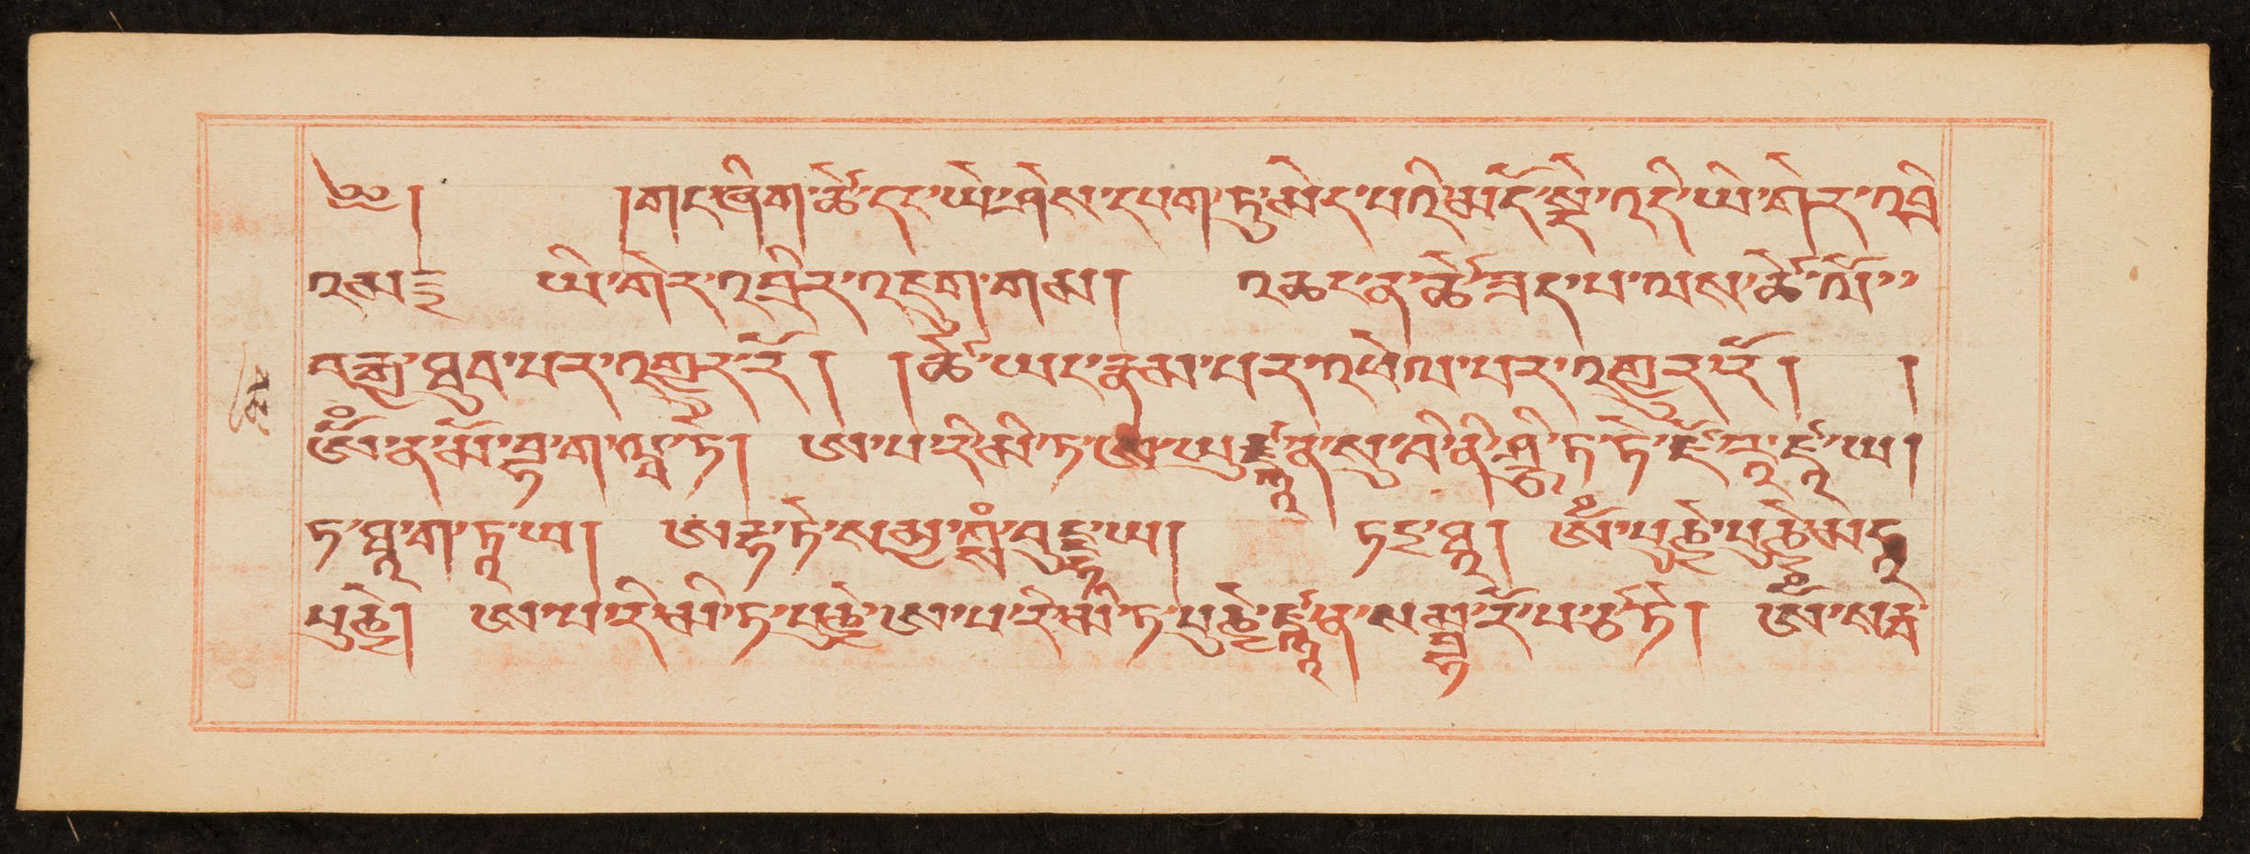 ༄༅། །གང་ཞིག་ཚེ་དང་ཡེ་ཤེས་དཔག་ཏུ་མེད་པའི་མདོ་སྡེ་འདི་ཡི་གེར་འབྲི
འམ༑ ཡི་གེར་འབྲིར་འཇུག་གམ། འཆང་ན་ཚེ་ཟད་པ་ལས་ཚེ་ལོ་
བརྒྱ་ཐུབ་པར་འགྱུར་རོ། །ཚེ་ཡང་རྣམ་པར་འཕེལ་བར་འགྱུར་རོ། །
ཨོཾ་ན་མོ་བྷ་ག་ཝ་ཏེ། ཨ་པ་རི་མི་ཏ་ཨཱ་ཡུ་རྫྙཱ་ན་སུ་བི་ནི་ཤྩི་ཏ་ཏེ་ཛོ་རཱ་ཛཱ་ཡ།
ཏ་ཐཱ་ག་ཏཱ་ཡ། ཨརྷ་ཏེ་སམྱ་ཀྶཾ་བུདྡྷཱ་ཡ། ཏདྱ་ཐཱ། ཨོཾ་པུཎྱེ་པུཎྱེ་མ་ཧཱ
པུཎྱེ། ཨ་པ་རི་མི་ཏ་པུཎྱེ་ཨ་པ་རི་མི་ཏ་པུཎྱེ་ཛྙཱ་ན་སམྦྷཱ་རོ་པ་ཙི་ཏེ། ཨོཾ་སརྦ